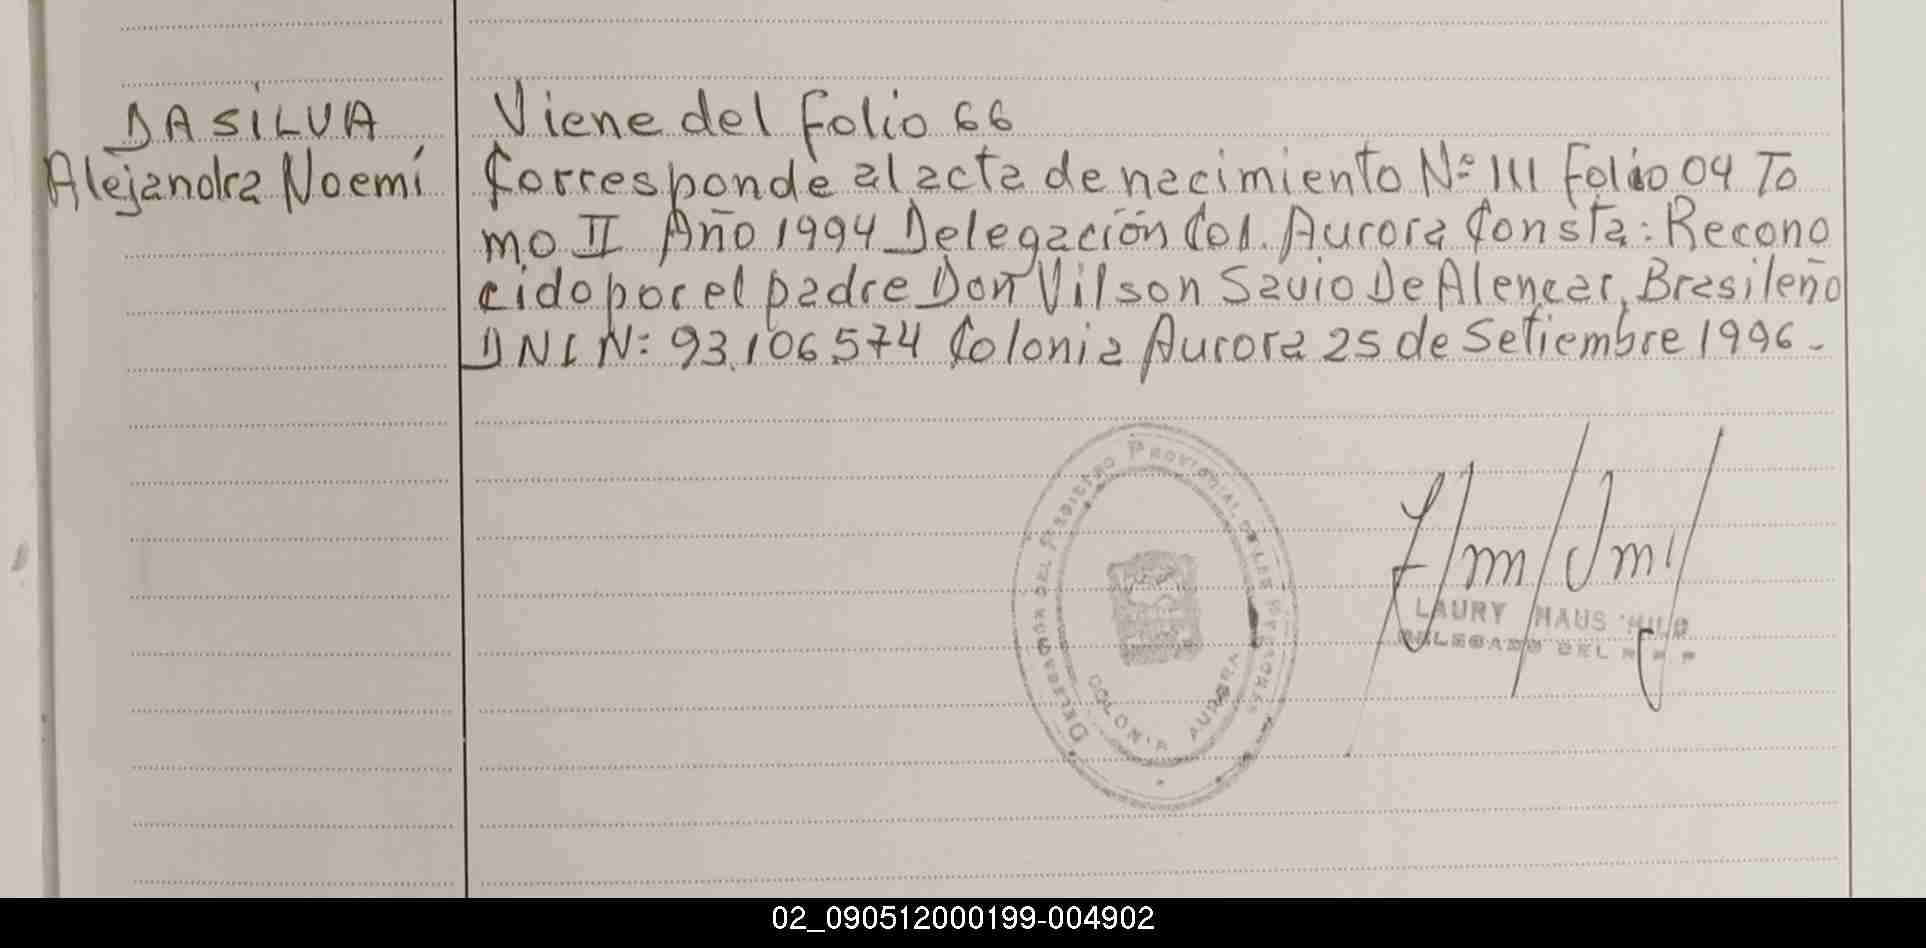 DA SILVA
Alejandra Noemí
Viene del Folio 66
Corresponde al acta de nacimiento Nº 111 Folio 04 To
mo II Año 1994 Delegación Col. Aurora Consta: Recono
cido por el padre Don Vilson Savio De Alencar, Brasileño
DNI N: 93.106.574 Colonia Aurora 25 de Setiembre 1996-
DELEGACION DEL REGISTRO PROVINCIAL DE LAS PERSONAS
COLONIA AURORA
LAURY HAUS
DELEGADO DEL R P P
02_090512000199-004902